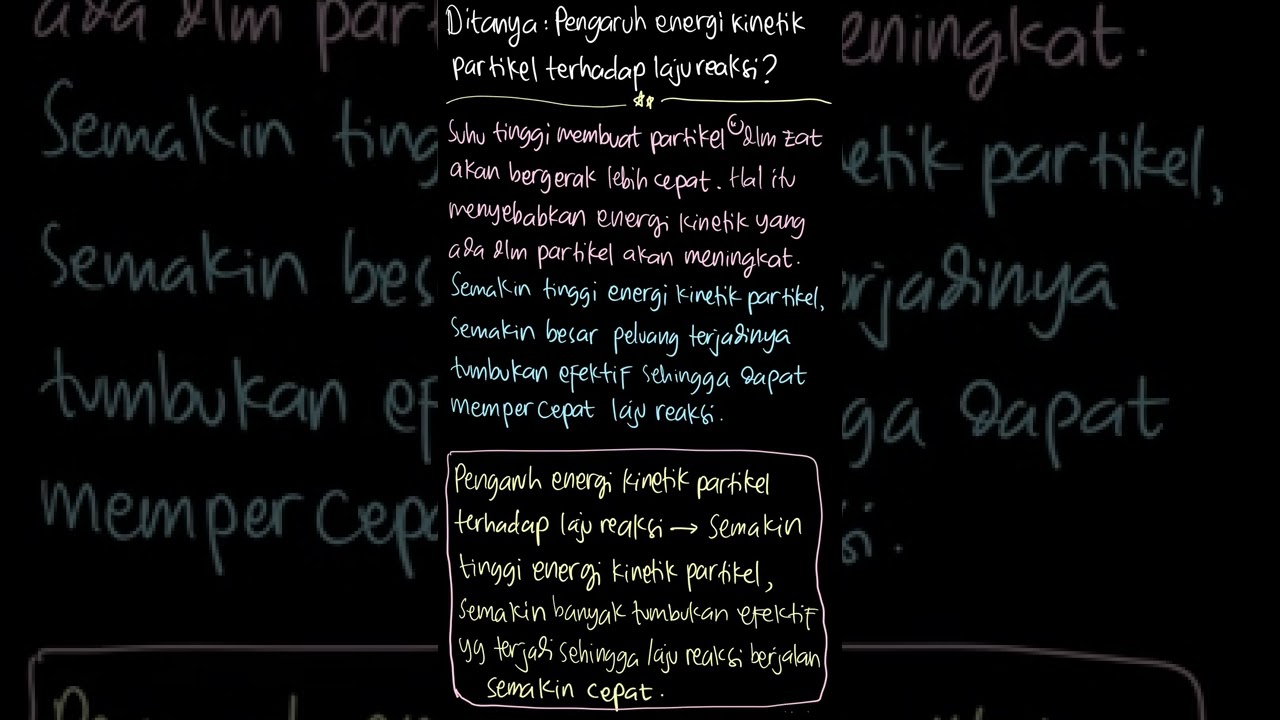 Ditanya : Pengaruh energi kinetik
partikel terhadap laju reaksi?
Suhu tinggi membuat partikel dlm zat
akan bergerak lebih cepat. Hal itu
menyebabkan energi kinetik yang
ada dlm partikel akan meningkat.
Semakin tinggi energi kinetik partikel,
Semakin besar peluang terjadinya
tumbukan efektif sehingga dapat
mempercepat laju reaksi.
Pengaruh energi kinetik partikel
terhadap laju reaksi → Semakin
tinggi energi kinetik partikel,
semakin banyak tumbukan efektif
yg terjadi sehingga laju reaksi berjalan
semakin cepat.